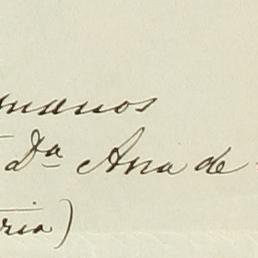 manos
Dª Ana de
ria)